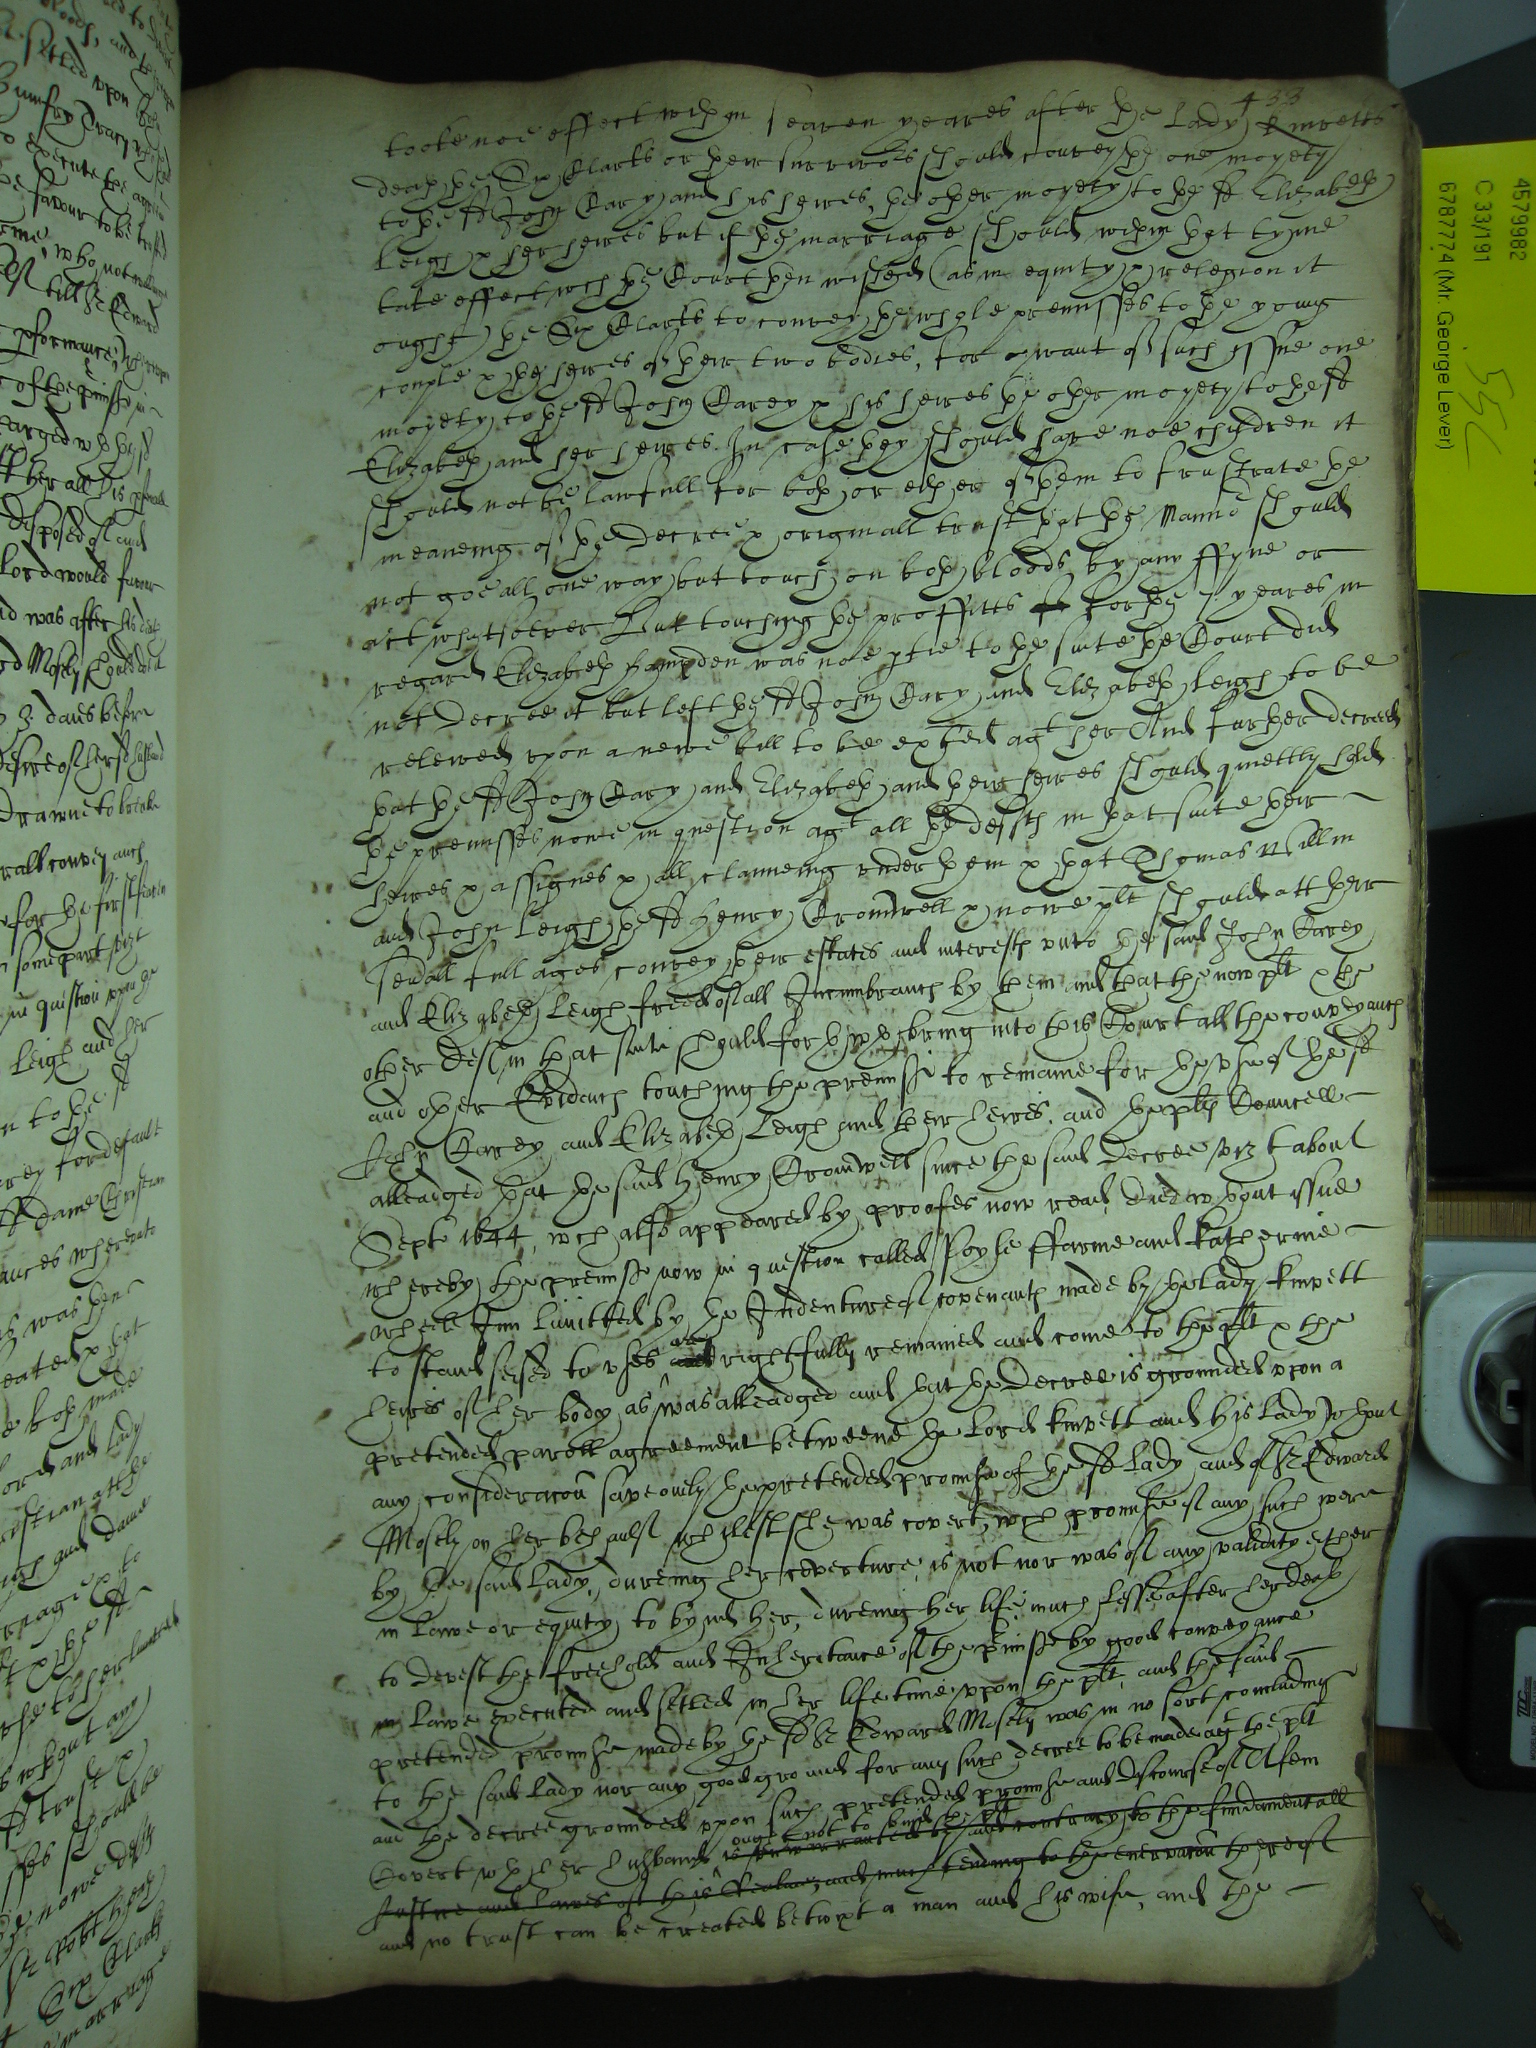 433
tooke noe effect wthin seaven yeares after the Lady Knvetts
death the Six Clarks or their survivors should convey the one moyety
to the sd John Cary and his heires, the other moyety to the sd Elizabeth
Leigh & her heires but if the marriage should wthin that tyme
take effect wch the Court then wished (as in equity & relegion it
ought) the Six Clarks to convey the whole premisses to the young
couple & the heires of their two bodies, for want of such issue one
moyety to the sd John Carey & his heires the other moyety to the sd
Elizabeth and her heires. In case they should have noe children it
should not be lawfull for both or either of them to frustrate the
meaneing of the decree & originall trust that the Mannor should
not goe all one way but touch on both bloods by any ffyne or
act whatsoever But touching the proffitts for the 7 yeares in
regard Elizabeth Hampden was noe ptie to the suite the Court did
not decree it but left the sd John Cary and Elizabeth Leigh to be
releived upon a newe bill to be exhted agt her And further decreed
that the sd John Cary and Elizabeth and their heires should quiettly hold
the premisses nowe in question agt all the defts in that suite their
heires & assignes & all claimeing under them & that Thomas Willm
and John Leigh the sd Henry Cromwell & nowe plt should att their
sevall full ages convey their estates and interests unto the said John Carey
and Elizabeth Leigh freed of all Incumbrances by them and that the now plt & the
other defts in that suite should forthwth bring into this Court all the conveyances
and other Evidences touching the premisses to remaine for the use of the sd
John Carey and Elizabeth Leigh and their heires. and the plts Councell
alleadged that the said Henry Cromwell since the said Decree vizt about
Sept 1644, wch also appeared by proofes now read, died wthout issue
whereby the premisses now in question called Foyle ffarme and Katherine
wheele Inn limitted by the Indenture of covenants made by the Lady Knvett
to stand seised to uses rightfully remained and come to the plt & the
heires of her body as was alleadged and that the Decree is grounded upon a
pretended paroll agreement betweene the Lord Knvett and his Lady wthout
any consideracon save onely the pretended promise of the sd Lady and of Sr Edward
Mosely on her behalf whilest she was covert, wch promise if any such were
by the said Lady, dureing her coverture, is not nor was of any validity either
in Lawe or equity to bynd her, dureing her life much lesse after her death
to devest the freehold and Inheritance of the pmisses by good conveyance
in Lawe executed and setled in her life time upon the plt, and the said
pretended promise made by the sd Sr Edward Mosely was in no sort concluding
to the said Lady nor any good ground for any such decree to be made agt the plt
and the decree grounded upon such pretended promise and discourse of A fem
ought not to bind the plt
Covert wth her husband is unwarranted by and contrary to the fundamentall
Justice and Lawes of this Realme, and much tending to the enervacon thereof
and no trust can be created betwixt a man and his wife, and the
4579982
C 33/191
6787774 (Mr. George Lever)